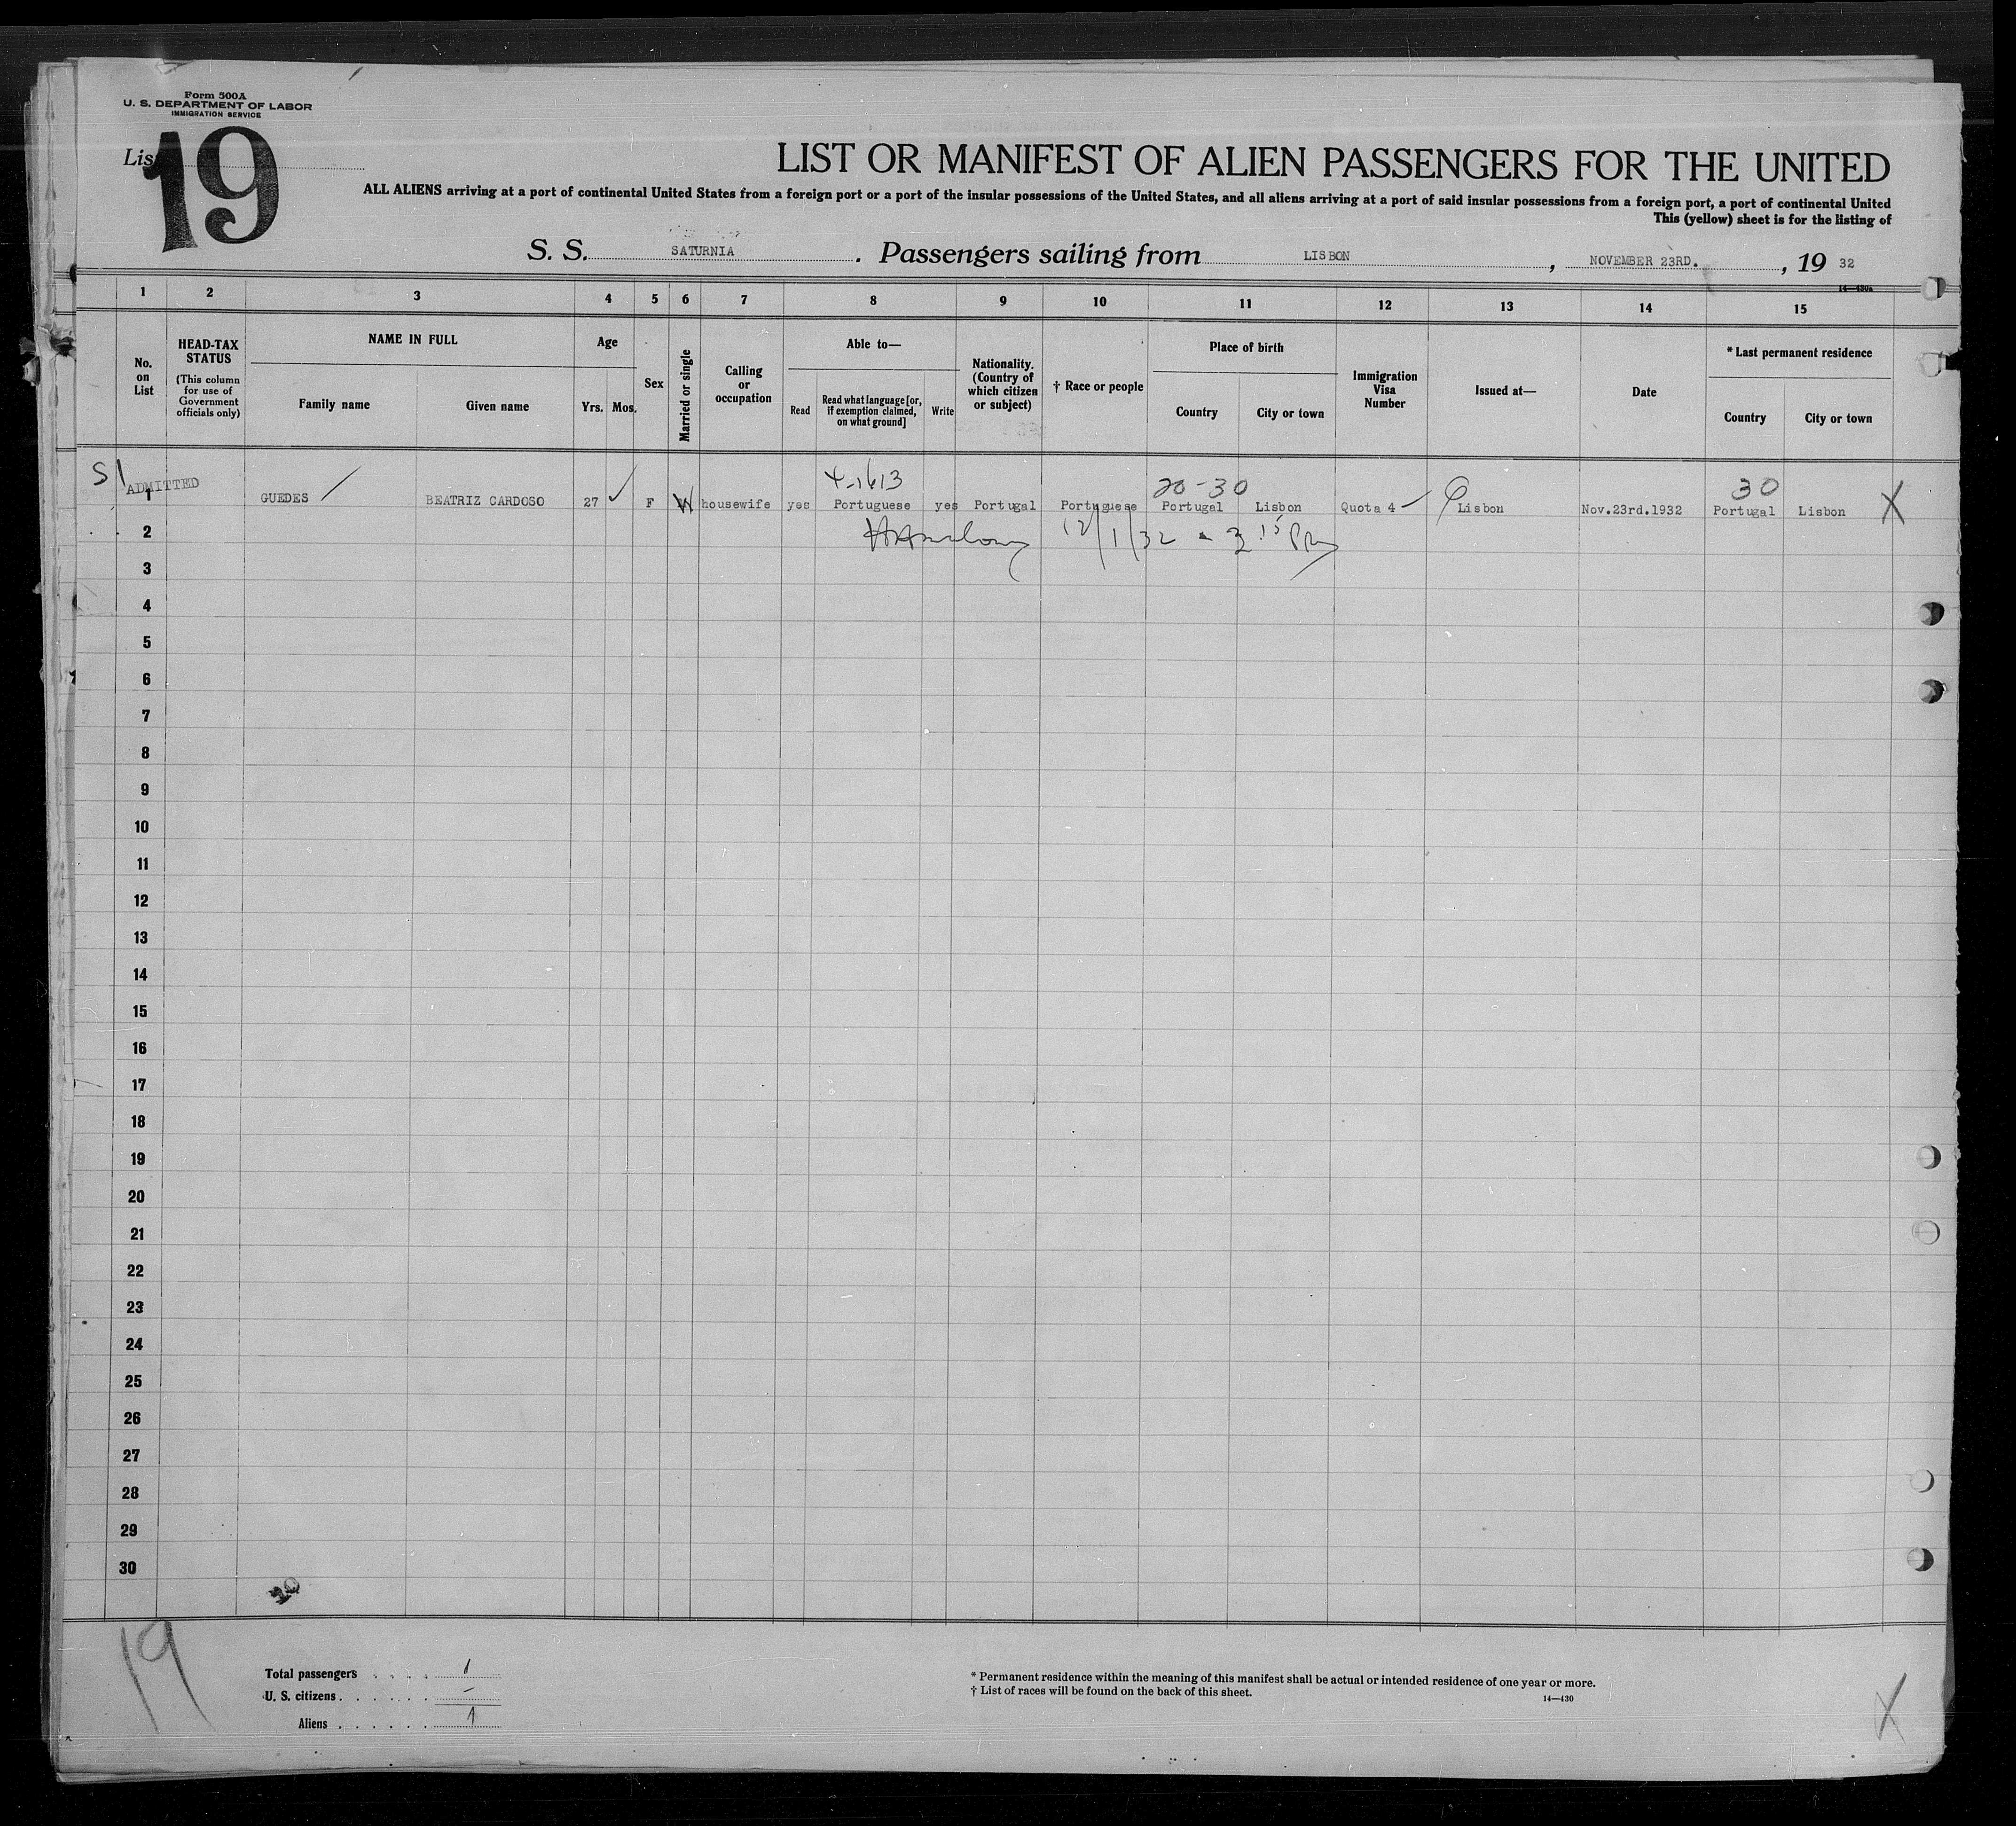 Form 500A
U. S. DEPARTMENT OF LABOR
IMMIGRATION SERVICE
List 19
LIST OR MANIFEST OF ALIEN PASSENGERS FOR THE UNITED
ALL ALIENS arriving at a port of continental United States from a foreign port or a port of the insular possessions of the United States, and all aliens arriving at a port of said insular possessions from a foreign port, a port of continental United
This (yellow) sheet is for the listing of
S. S. SATURNIA . Passengers sailing from LISBON , NOVEMBER 23RD. , 19 32
14—430a
1 2 3 4 5 6 7 8 9 10 11 12 13 14 15
No. on List
HEAD-TAX STATUS
(This column for use of Government officials only)
NAME IN FULL
Family name
Given name
Age
Yrs. Mos.
Sex
Married or single
Calling or occupation
Able to—
Read
Read what language [or, if exemption claimed, on what ground]
Write
Nationality. (Country of which citizen or subject)
† Race or people
Place of birth
Country
City or town
Immigration Visa Number
Issued at—
Date
* Last permanent residence
Country
City or town
S1
4-1613
20-30
30
1 ADMITTED GUEDES BEATRIZ CARDOSO 27 F W housewife yes Portuguese yes Portugal Portuguese Portugal Lisbon Quota 4 Lisbon Nov.23rd.1932 Portugal Lisbon X
2 12/1/32 - 3 15 Pm
3
4
5
6
7
8
9
10
11
12
13
14
15
16
17
18
19
20
21
22
23
24
25
26
27
28
29
30
19
Total passengers . . . . 1
U. S. citizens . . . . . . –
Aliens . . . . . . 1
* Permanent residence within the meaning of this manifest shall be actual or intended residence of one year or more.
† List of races will be found on the back of this sheet.
14—430
X